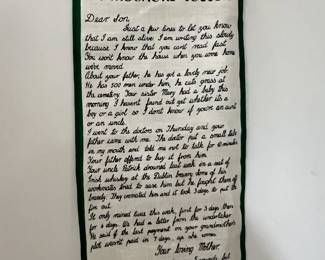 Dear Son,
Just a few lines to let you know
that I am still alive I am writing this slowly
because I know that you cant read fast
You won't know the house when you come home
we've moved.
About your father, he has got a lovely new job.
He has 500 men under him, he cuts grass at
the cemetery. Your sister Mary had a baby this
morning I havent found out yet whether its a
boy or a girl so I dont know if youre an aunt
or an uncle.
I went to the doctors on Thursday and your
father came with me. The doctor put a small tube
in my mouth and told me not to talk for 10 minutes
Your father offered to buy it from him.
Your uncle Patrick drowned last week in a vat of
Irish whiskey at the Dublin brewery some of his
workmates tried to save him but he fought them off
bravely. They cremated him and it took 3 days to put the
fire out.
It only rained twice this week, first for 3 days then
for 4 days. We had a letter from the undertaker
He said if the last payment on your grandmother's
plot wasn't paid in 7 days, up she comes
Your Loving Mother.